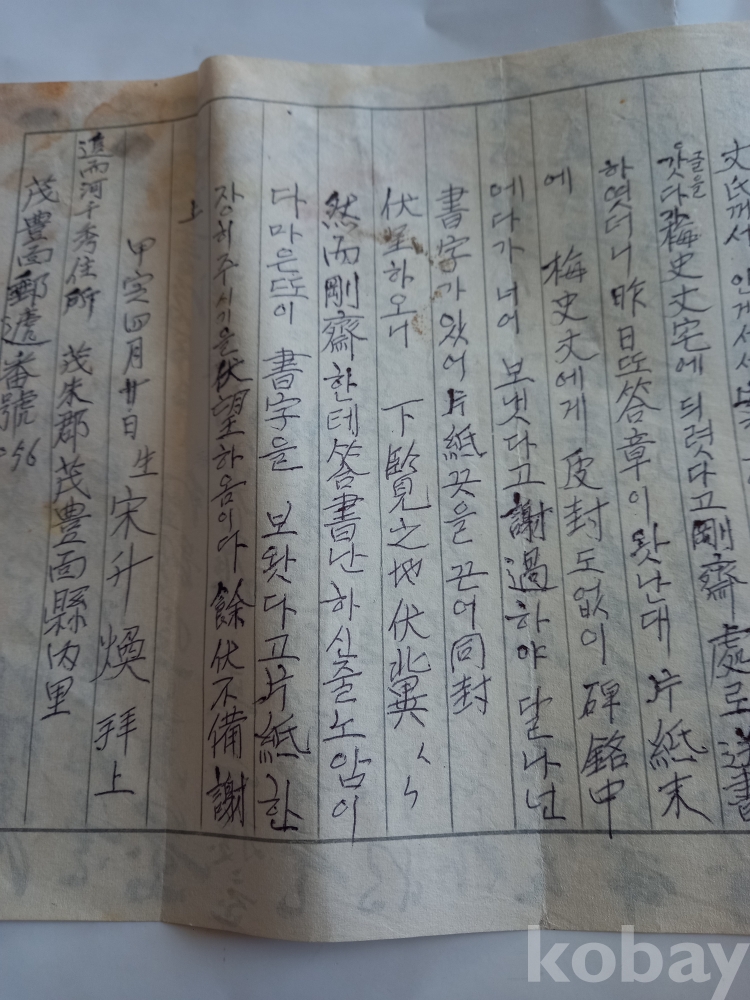 丈氏께서
갓다가 글을 梅史丈宅에 듸렷다고 剛齋處로 送書
하엿더니 昨日또答章이 왓난대 片紙末
에 梅史丈에게 皮封도없이 碑銘中
에다가 너어 보냇다고 謝過하야 달나난
書字가 있어 片紙끗을 끈어 同封
伏呈하오니 下覽之地伏冀〱
然而剛齋한테 答書난 하신줄노 암이
다마은 또이 書字을 보왓다고 片紙 한
장히주시기을 伏望하옴이다 餘伏不備謝
上
甲寅四月廿日 生 宋升煥 拜上
進而河千秀住所 茂朱郡 茂豊面 縣內里
茂豊面郵遞番號
56
kobay